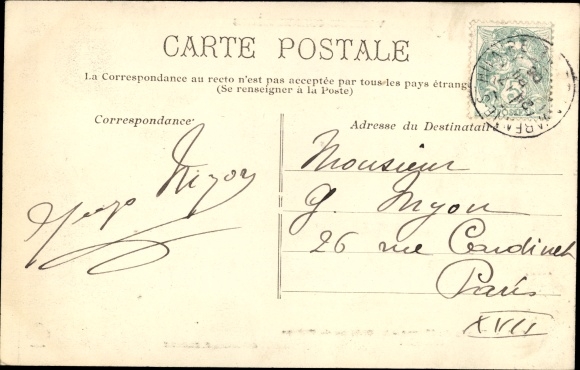 CARTE POSTALE
La Correspondance au recto n'est pas acceptée par tous les pays étrang
(Se renseigner à la Poste)
Correspondance
Adresse du Destinatai
Monsieur
G. Nyon
26 rue Cardinet
Paris
XVII